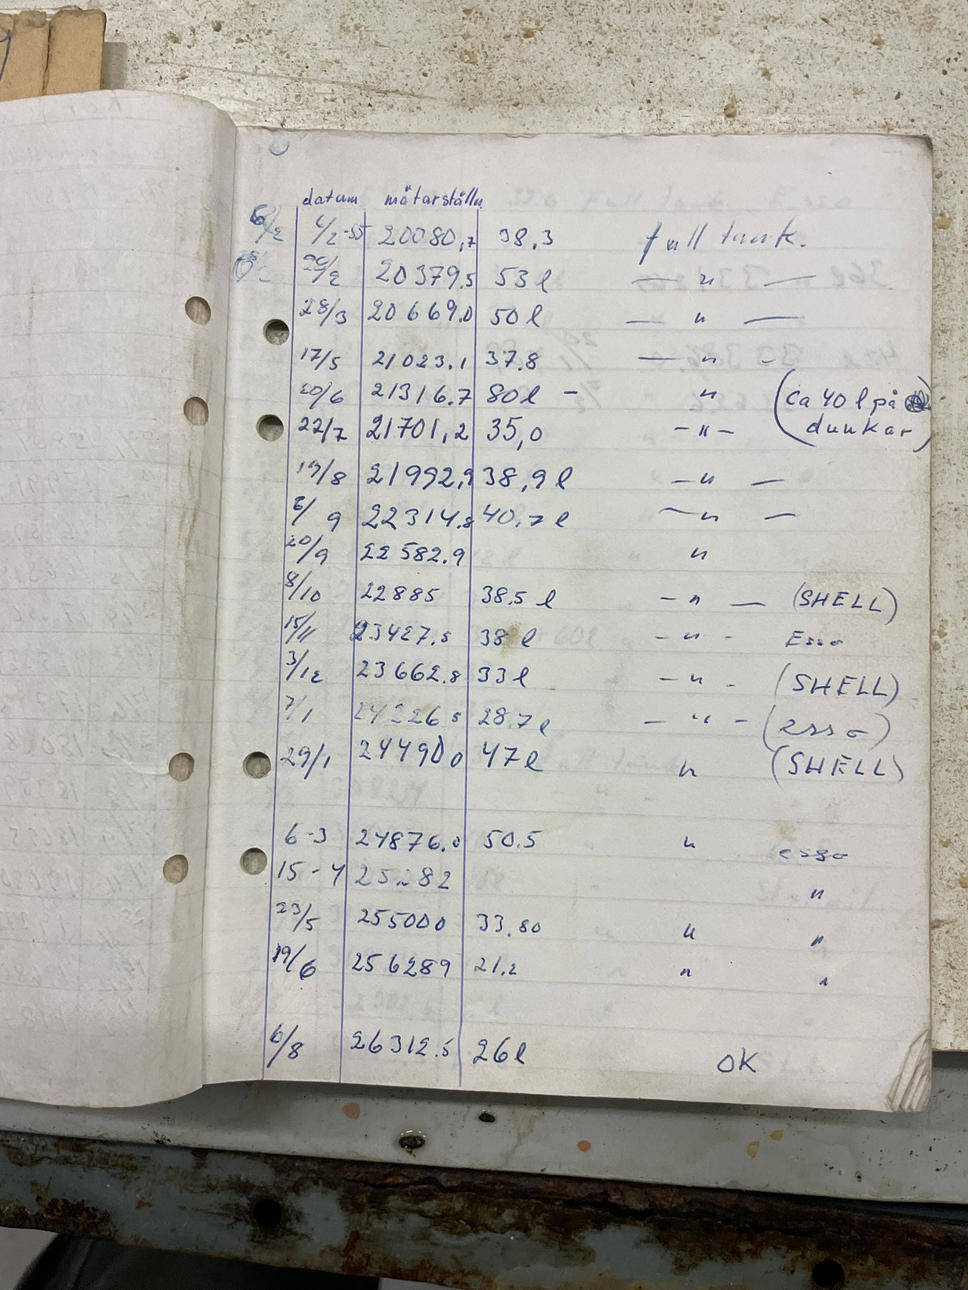 datum mätarställn
6/2 4/2-55 20080,7 38,3 full tank.
20379.5 53 l — " —
28/3 20669.0 50 l — " —
17/5 21023.1 37.8 — " -
20/6 21316.7 80 l - " (Ca 40 l på
dunkar)
22/7 21701,2 35,0 - " -
19/8 21992,9 38,9 l — " —
6/9 22314.8 40.7 l — " —
20/9 22582.9 "
8/10 22885 38.5 l - " — (SHELL)
15/11 23427.5 38 l - " - Esso
3/12 23662.8 33 l - " - (SHELL)
7/1 24226 5 28.7 l — " - (esso)
29/1 24490 0 47 l " (SHELL)
6-3 24876.0 50.5 " esso
15-4 25282 "
23/5 255000 33.80 " "
19/6 256289 21,2 " "
6/8 26312.5 26 l OK